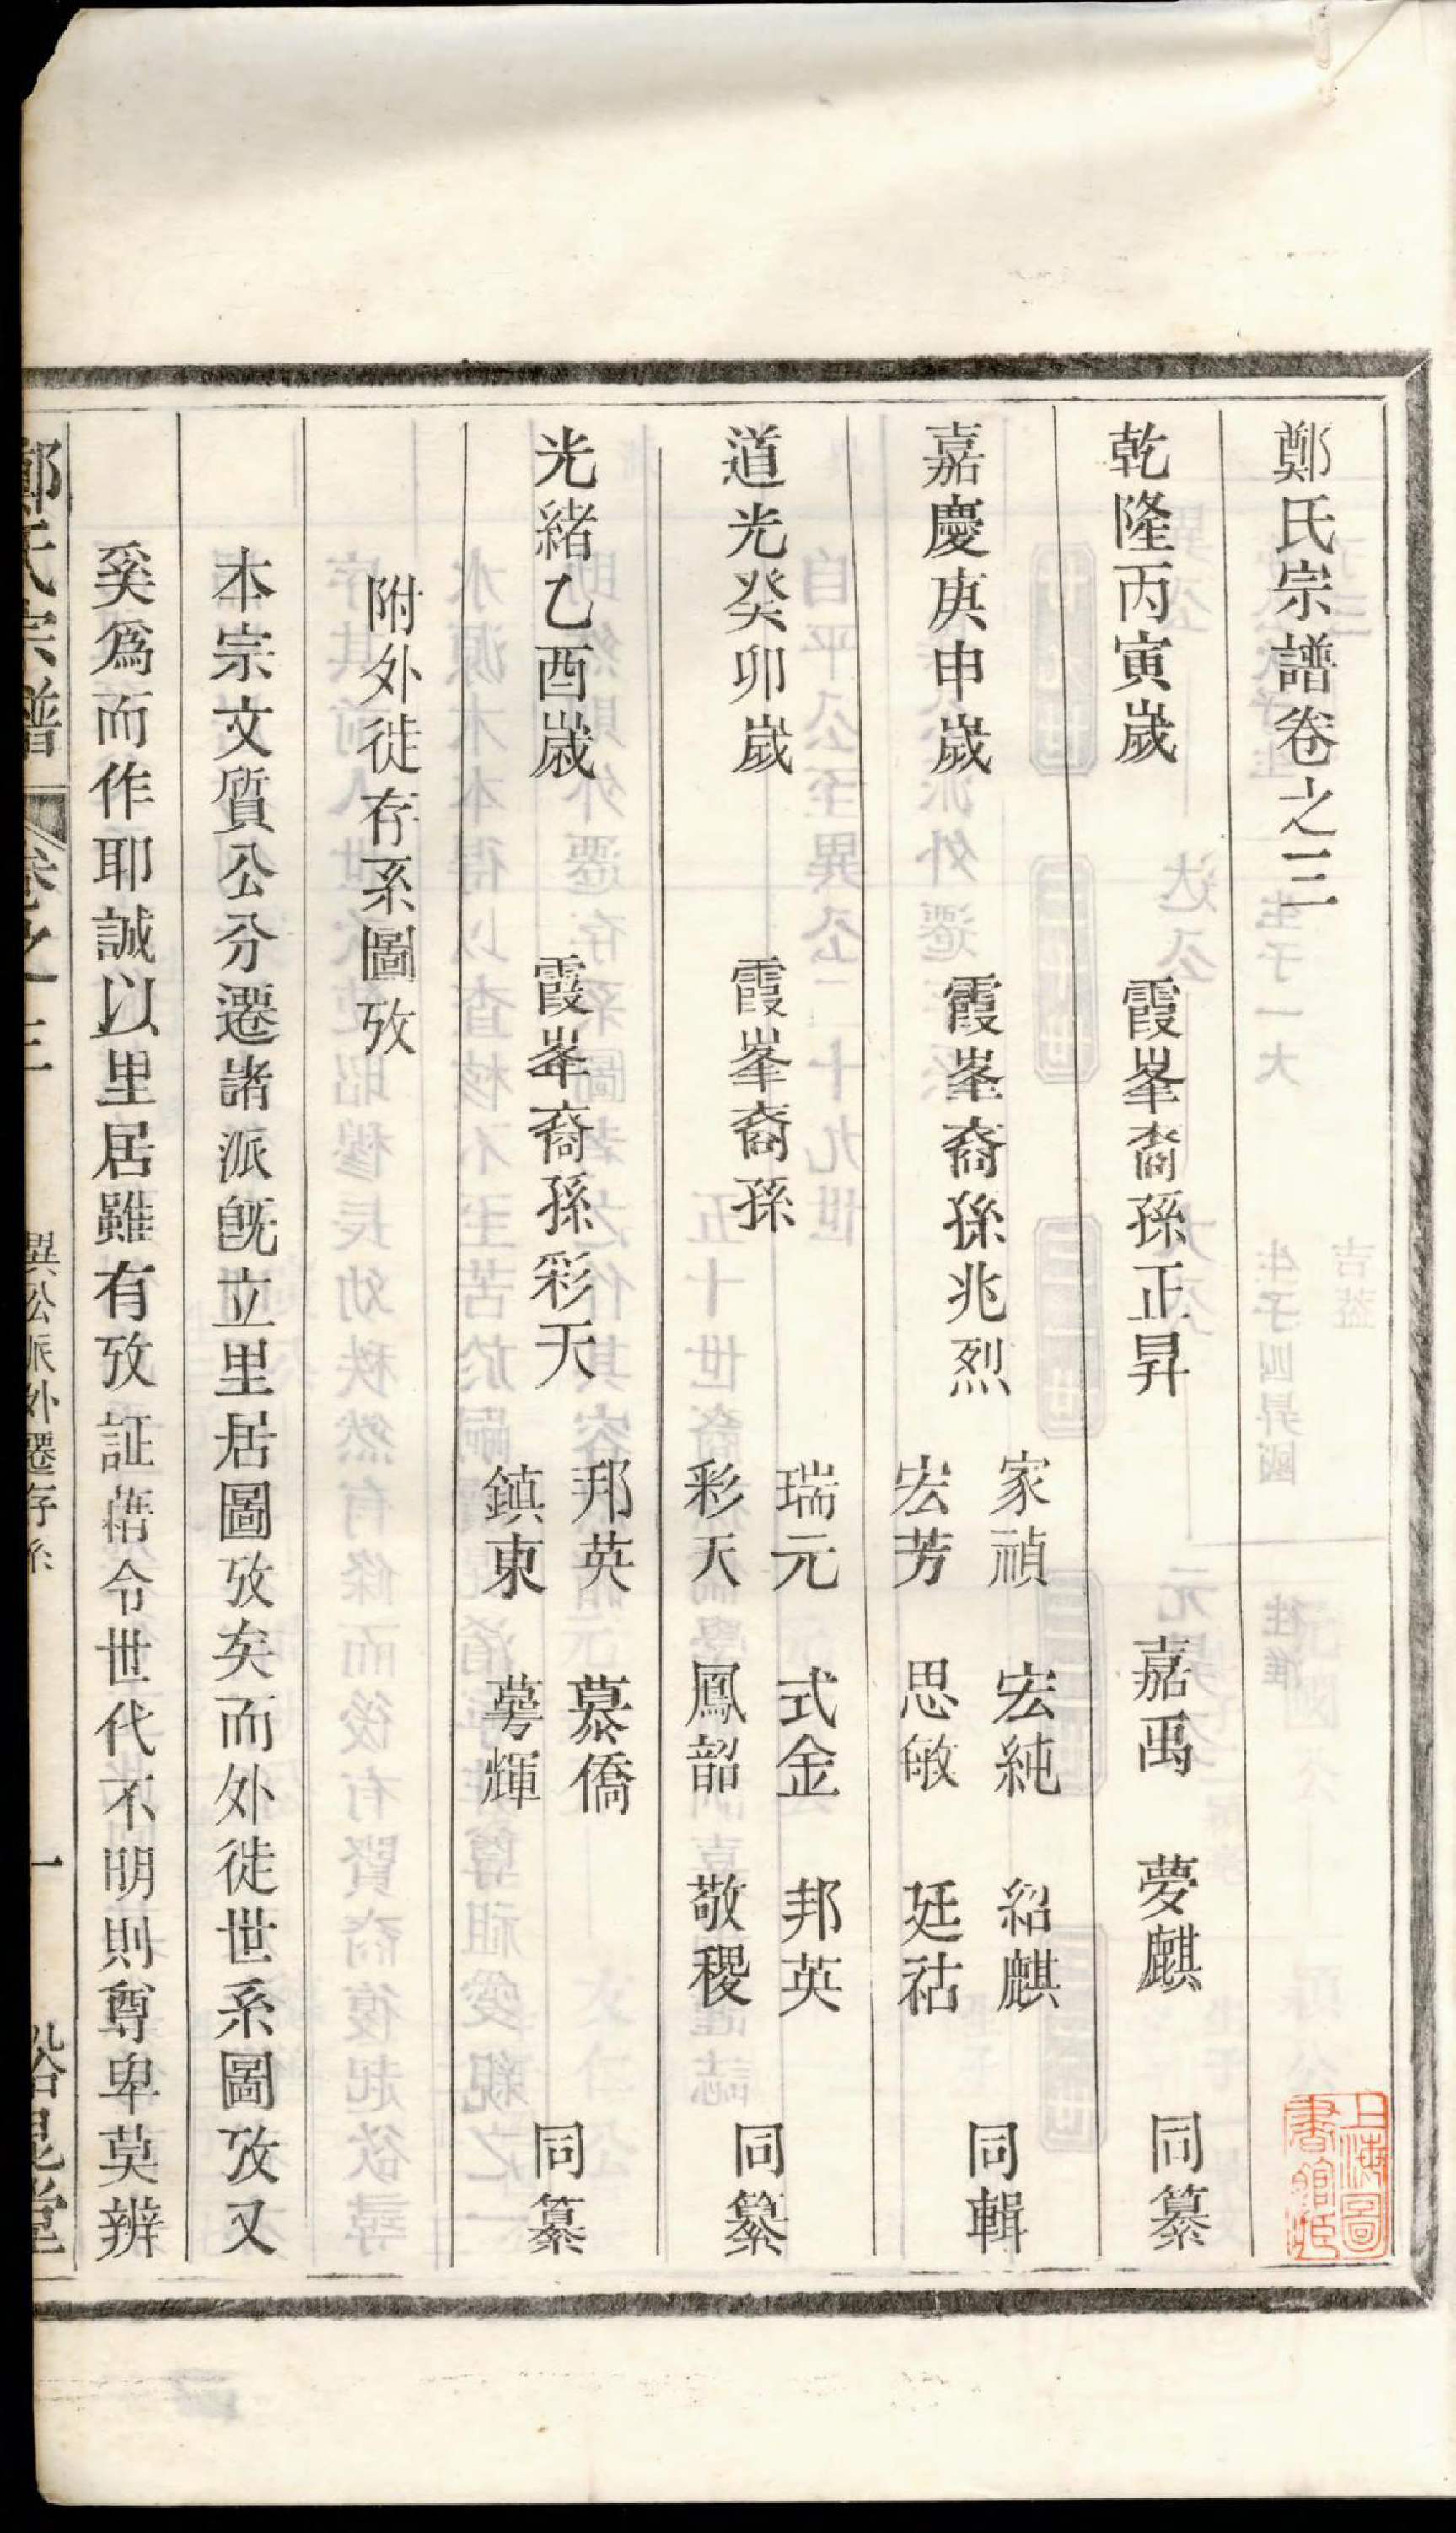 鄭氏宗譜卷之三
乾隆丙寅歲 霞峯裔孫正昇 嘉禹 夢麒 同纂
嘉慶庚申歲 霞峯裔孫兆烈 家禎 宏純 紹麒 同輯
宏芳 思敏 廷祜
道光癸卯歲 霞峯裔孫 瑞元 式金 邦英 同纂
彩天 鳳韶 敬稷
光緒乙酉歲 霞峯裔孫彩天 邦英 慕僑 同纂
鎮東 萼輝
附外徙存系圖攷
本宗文質公分遷諸派旣立里居圖攷矣而外徙世系圖攷又
奚爲而作耶誠以里居雖有攷証藉令世代不明則尊卑莫辨
鄭氏宗譜 卷之三 異公派外遷存系 一
上海圖書館藏